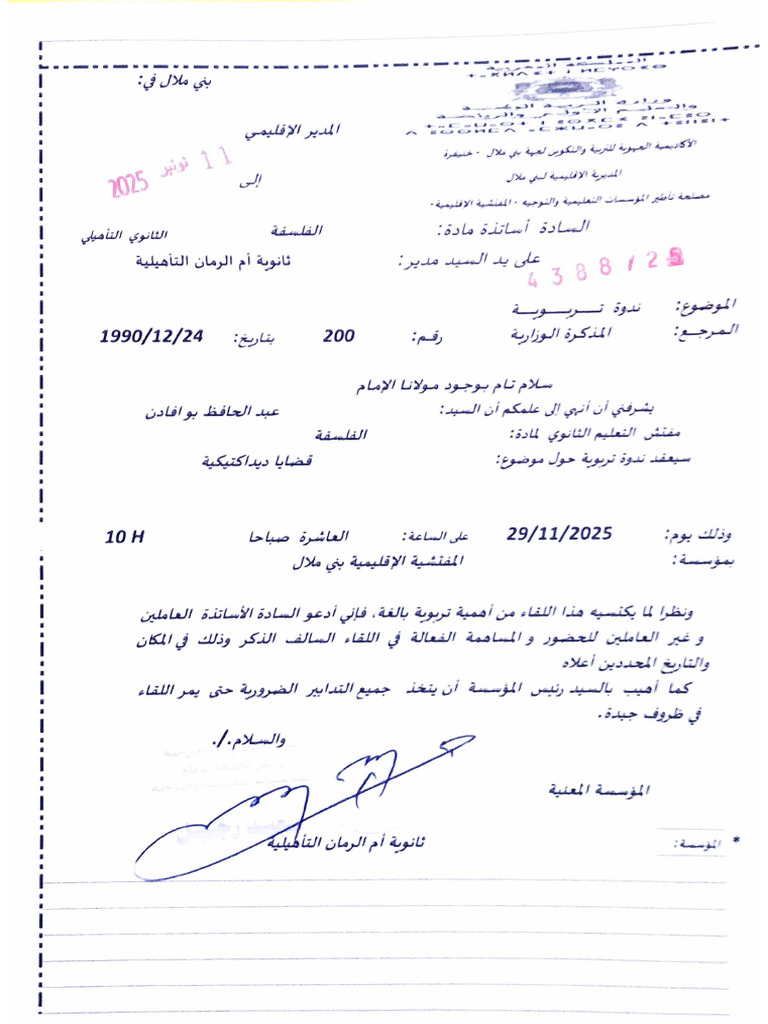 المملكة المغربية
ⵜⴰⴳⵍⴷⵉⵜ ⵏ ⵍⵎⵖⵔⵉⴱ
وزارة التربية الوطنية
والتعليم الأولي والرياضة
الأكاديمية الجهوية للتربية والتكوين لجهة بني ملال - خنيفرة
المديرية الإقليمية لبني ملال
مصلحة تأطير المؤسسات التعليمية والتوجيه - المفتشية الإقليمية -
بني ملال في:
11 نونبر 2025
المدير الإقليمي
إلى
السادة أساتذة مادة: الفلسفة الثانوي التأهيلي
على يد السيد مدير: ثانوية أم الرمان التأهيلية
4388/25
الموضوع: ندوة تــربــويــة
المرجع: المذكرة الوزارية رقم: 200 بتاريخ: 1990/12/24
سلام تام بوجود مولانا الإمام
يشرفني أن أنهي إلى علمكم أن السيد: عبد الحافظ بوافادن
مفتش التعليم الثانوي لمادة: الفلسفة
سيعقد ندوة تربوية حول موضوع: قضايا ديداكتيكية
وذلك يوم: 29/11/2025 على الساعة: العاشرة صباحا 10 H
بمؤسسة: المفتشية الإقليمية بني ملال
ونظرا لما يكتسيه هذا اللقاء من أهمية تربوية بالغة، فإني أدعو السادة الأساتذة العاملين
و غير العاملين للحضور و المساهمة الفعالة في اللقاء السالف الذكر وذلك في المكان
والتاريخ المحددين أعلاه
كما أهيب بالسيد رئيس المؤسسة أن يتخذ جميع التدابير الضرورية حتى يمر اللقاء
في ظروف جيدة.
والسلام./.
المؤسسة المعنية
* المؤسسة: ثانوية أم الرمان التأهيلية